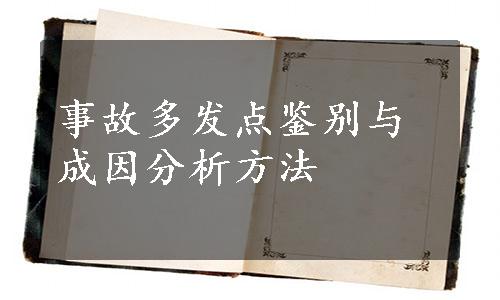 事故多发点鉴别与
成因分析方法